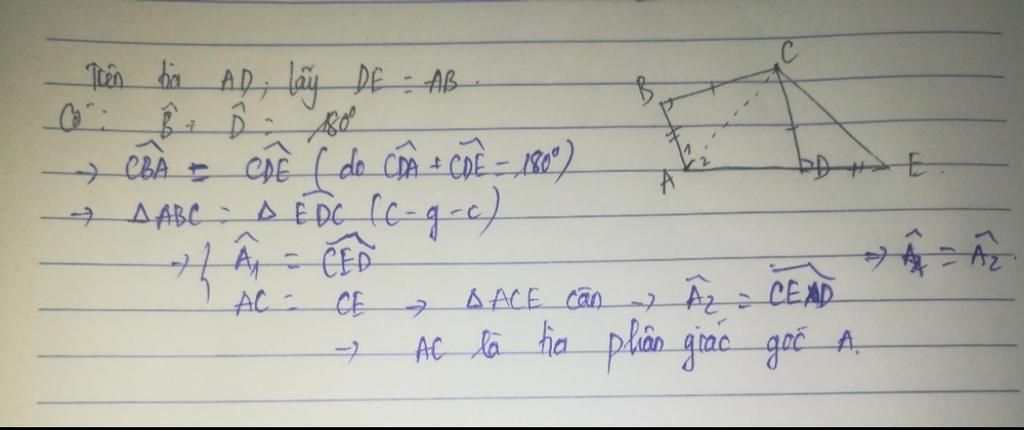 Trên tia AD, lấy DE = AB.
Có: B̂ + D̂ = 180°
→ \widehat{CBA} = \widehat{CDE} (do \widehat{CDA} + \widehat{CDE} = 180°)
→ ΔABC = Δ EDC (C-g-c)
→ { Â₁ = \widehat{CED}
AC = CE → ΔACE cân → Â₂ = \widehat{CED}
⇒ Â₁ = Â₂.
→ AC là tia phân giác góc A.
B
C
A
1
2
D
E